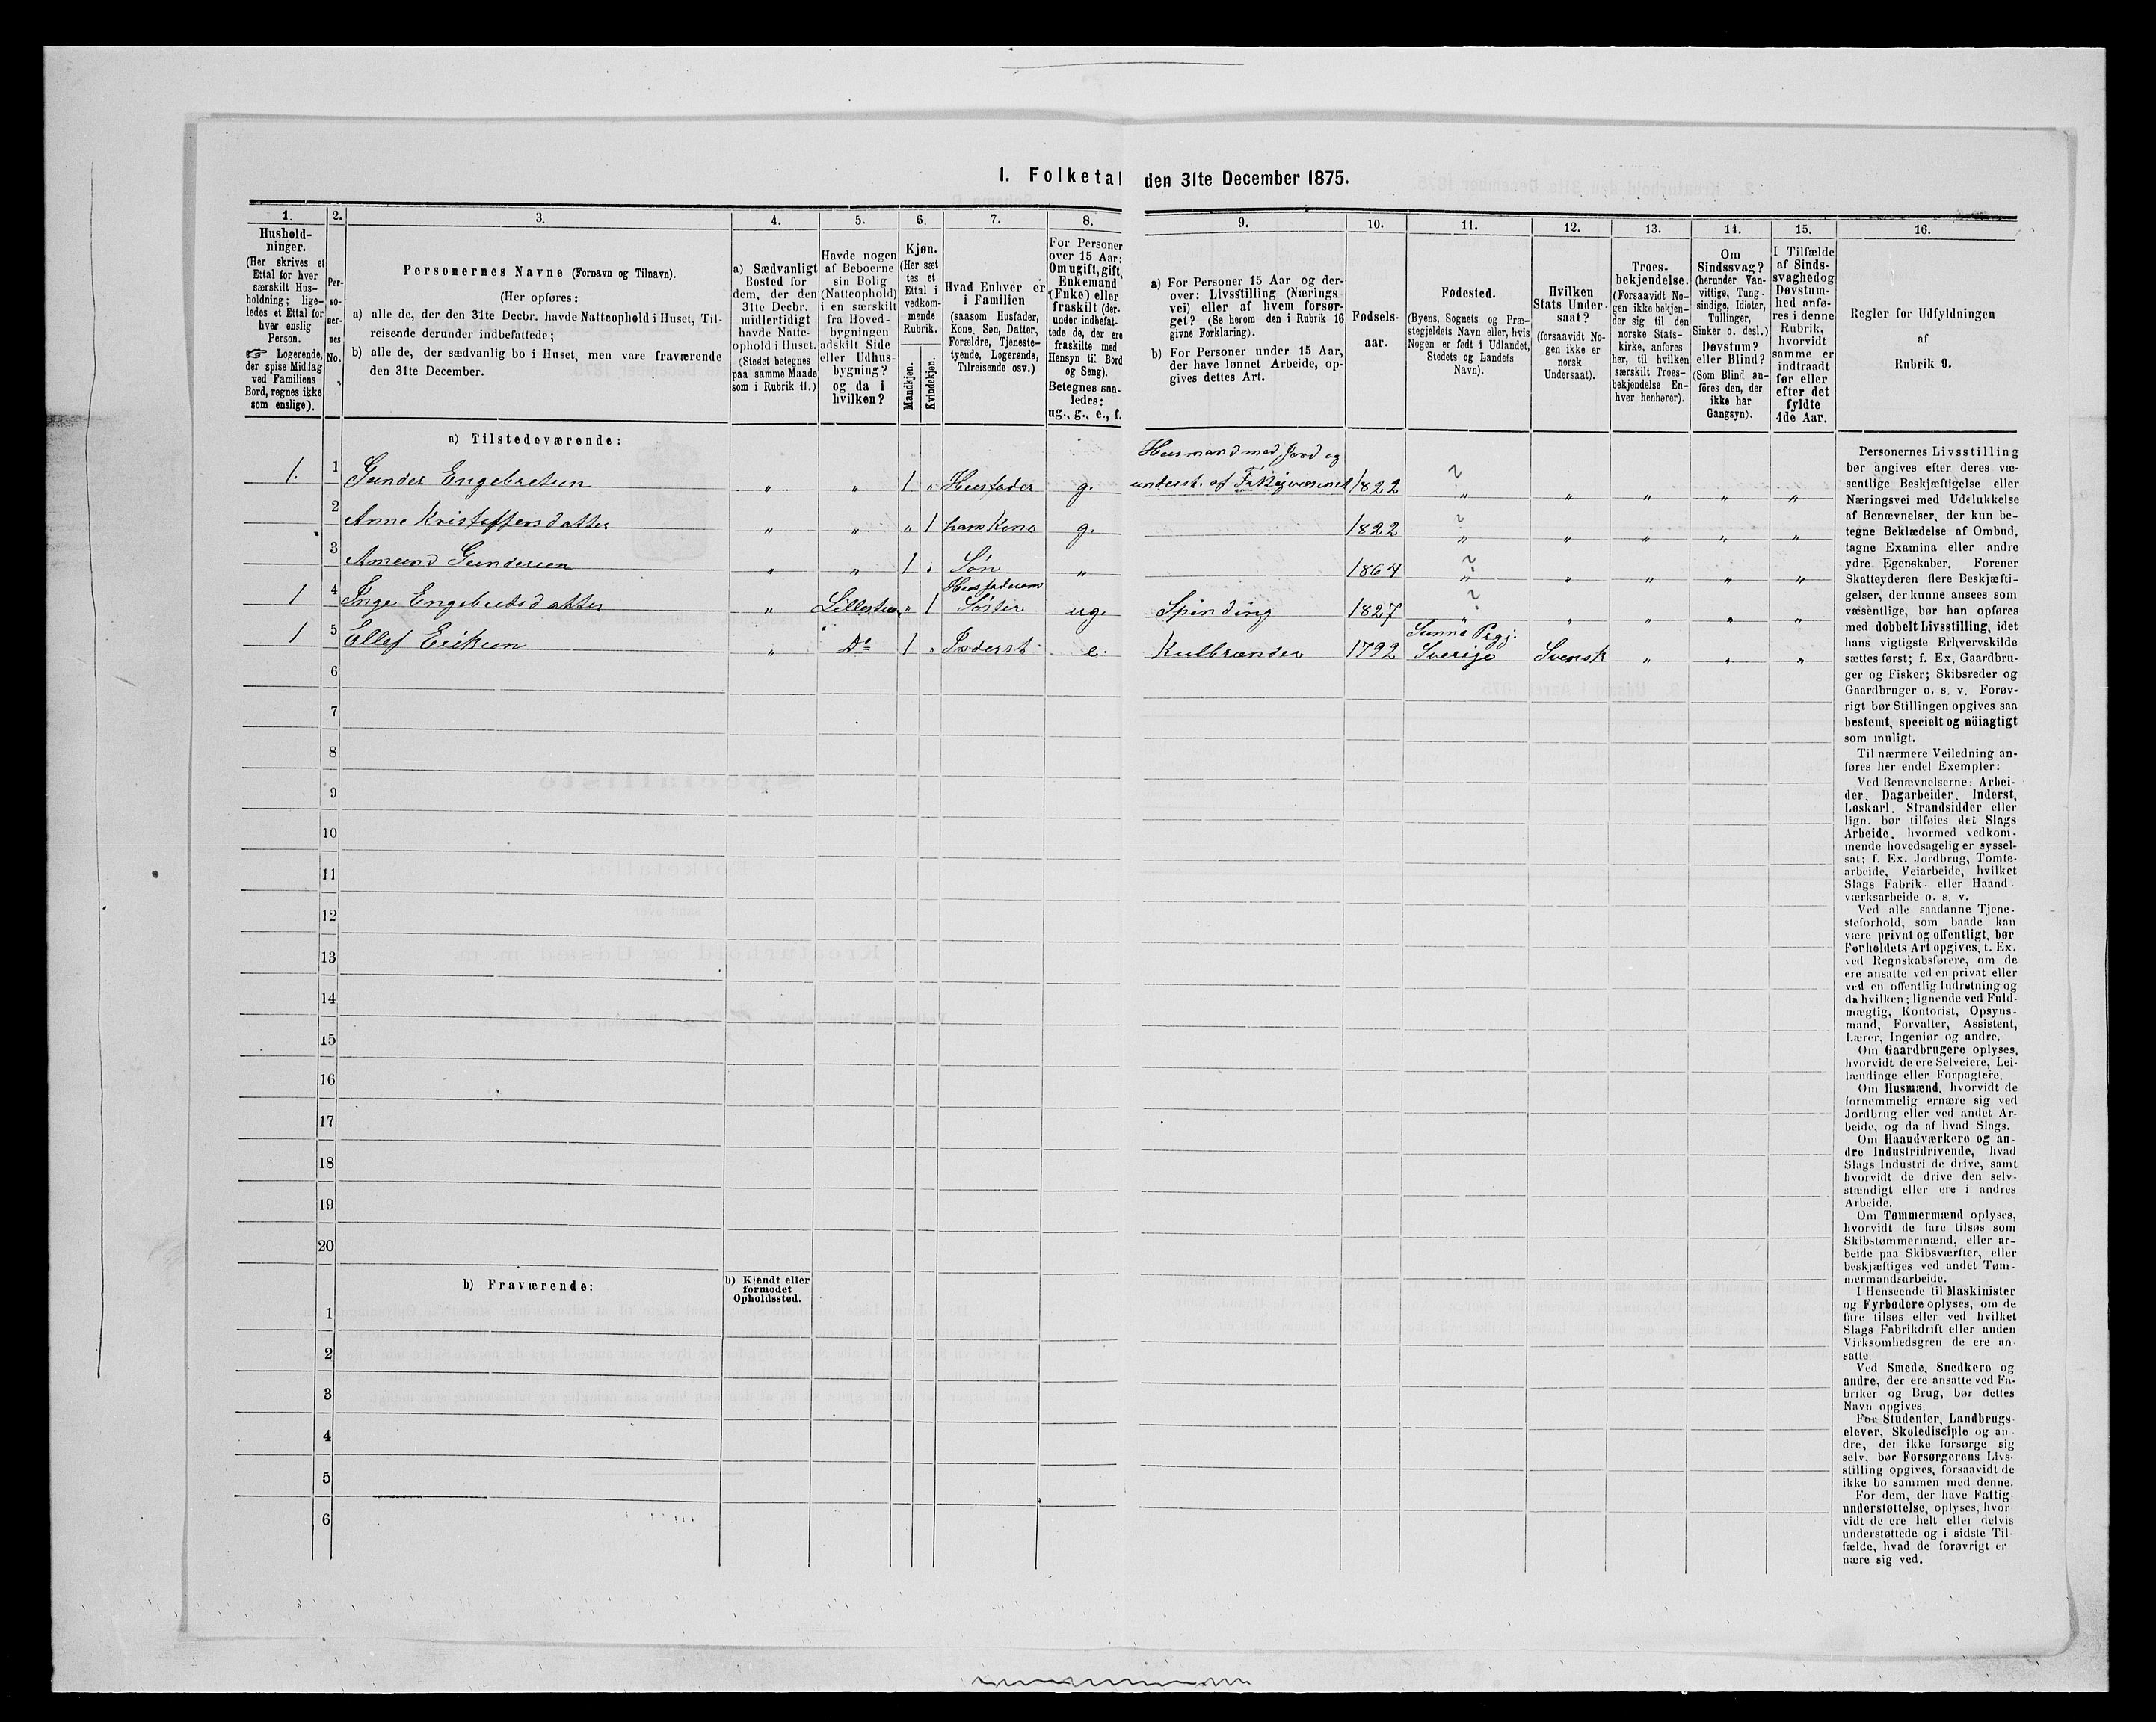 I. Folketal den 31te December 1875.
1.
2.
3.
4.
5.
6.
7.
8.
9.
10.
11.
12.
13.
14.
15.
16.
Hushold-
ninger.
(Her skrives et
Ettal for hver
særskilt Hus-
holdning; lige-
ledes et Ettal for
hver enslig
Person.
☞ Logerende,
der spise Middag
ved Familiens
Bord, regnes ikke
som enslige).
Per-
so-
ner-
nes
No.
Personernes Navne (Fornavn og Tilnavn).
(Her opføres:
a) alle de, der den 31te Decbr. havde Natteophold i Huset, Til-
reisende derunder indbefattede;
b) alle de, der sædvanlig bo i Huset, men vare fraværende
den 31te December.
a) Sædvanligt
Bosted for
dem, der den
31te Decbr.
midlertidigt
havde Natte-
ophold i Huset.
(Stedet betegnes
paa samme Maade
som i Rubrik 11.)
Havde nogen
af Beboerne
sin Bolig
(Natteophold)
i en særskilt
fra Hoved-
bygningen
adskilt Side
eller Udhus-
bygning?
og da i
hvilken?
Kjøn.
(Her sæt
tes et
Ettal i
vedkom-
mende
Rubrik.
Mandkjøn.
Kvindekjøn.
Hvad Enhver er
i Familien
(saasom Husfader,
Kone, Søn, Datter,
Forældre, Tjeneste-
tyende, Logerende,
Tilreisende osv.)
For Personer
over 15 Aar:
Om ugift, gift,
Enkemand
(Enke) eller
fraskilt (der-
under indbefat-
tede de, der ere
fraskilte med
Hensyn til Bord
og Seng).
Betegnes saa-
ledes:
ug., g., e., f.
a) For Personer 15 Aar og der-
over: Livsstilling (Nærings
vei) eller af hvem forsør-
get? (Se herom den i Rubrik 16
givne Forklaring).
b) For Personer under 15 Aar,
der have lønnet Arbeide, op-
gives dettes Art.
Fødsels-
aar.
Fødested.
(Byens, Sognets og Præ-
stegjeldets Navn eller, hvis
Nogen er født i Udlandet,
Stedets og Landets
Navn).
Hvilken
Stats Under-
saat?
(forsaavidt No-
gen ikke er
norsk
Undersaat).
Troes-
bekjendelse.
(Forsaavidt No-
gen ikke bekjen-
der sig til den
norske Stats-
kirke, anføres
her, til hvilken
særskilt Troes-
bekjendelse En-
hver henhører).
Om
Sindssvag?
(herunder Van-
vittige, Tung-
sindige, Idioter,
Tullinger,
Sinker o. desl.)
Døvstum?
eller Blind?
(Som Blind an-
føres den, der
ikke har
Gangsyn).
I Tilfælde
af Sinds-
svaghed og
Døvstum-
hed anfø-
res i denne
Rubrik,
hvorvidt
samme er
indtraadt
før eller
efter det
fyldte
4de Aar.
Regler for Udfyldningen
af
Rubrik 9.
a) Tilstedeværende:
Husmand med Jord og
1. 1 Gunder Engebretsen „ „ 1 „ Husfader g. underst. af Fattigvæsenet 1822 ? „ „ „ „ „
2 Anne Kristoffersdatter „ „ „ 1 hans Kone g. 1822 ? „ „ „ „ „
3 Amund Gundersen „ „ 1 „ Søn „ 1864 ? „ „ „ „ „
Husfaderens
1 4 Inge Engebretsdatter „ Lillestuen „ 1 Søster ug. Spinding 1827 ? „ „ „ „ „
Sunne Prgj.
1 5 Ellef Eriksen „ Do 1 „ Inderst e. Kulbrænder 1792 Sverige Svensk „ „ „
6
7
8
9
10
11
12
13
14
15
16
17
18
19
20
b) Fraværende:
b) Kjendt eller
formodet
Opholdssted.
1
2
3
4
5
6
Personernes Livsstilling
bør angives efter deres væ-
sentlige Beskjæftigelse eller
Næringsvei med Udelukkelse
af Benævnelser, der kun be-
tegne Beklædelse af Ombud,
tagne Examina eller andre
ydre Egenskaber. Forener
Skatteyderen flere Beskjæfti-
gelser, der kunne ansees som
væsentlige, bør han opføres
med dobbelt Livsstilling, idet
hans vigtigste Erhvervskilde
sættes først; f. Ex. Gaardbru-
ger og Fisker; Skibsreder og
Gaardbruger o. s. v. Forøv-
rigt bør Stillingen opgives saa
bestemt, specielt og nöiagtigt
som muligt.
Til nærmere Veiledning an-
føres her endel Exempler:
Ved Benævnelserne: Arbei-
der, Dagarbeider, Inderst,
Løskarl, Strandsidder eller
lign. bør tilføies det Slags
Arbeide, hvormed vedkom-
mende hovedsagelig er syssel-
sat; f. Ex. Jordbrug, Tomte-
arbeide, Veiarbeide, hvilket
Slags Fabrik- eller Haand-
værksarbeide o. s. v.
Ved alle saadanne Tjene-
steforhold, som baade kan
være privat og offentligt, bør
Forholdets Art opgives, t. Ex.
ved Regnskabsførere, om de
ere ansatte ved en privat eller
ved en offentlig Indretning og
da hvilken; lignende ved Fuld-
mægtig, Kontorist, Opsyns-
mand, Forvalter, Assistent,
Lærer, Ingeniør og andre.
Om Gaardbrugere oplyses,
hvorvidt de ere Selveiere, Lei-
lændinge eller Forpagtere.
Om Husmænd, hvorvidt de
fornemmelig ernære sig ved
Jordbrug eller ved andet Ar-
beide, og da af hvad Slags.
Om Haandværkere og an-
dre Industridrivende, hvad
Slags Industri de drive, samt
hvorvidt de drive den selv-
stændigt eller ere i andres
Arbeide.
Om Tømmermænd oplyses,
hvorvidt de fare tilsøs som
Skibstømmermænd, eller ar-
beide paa Skibsværfter, eller
beskjæftiges ved andet Tøm-
mermandsarbeide.
I Henseende til Maskinister
og Fyrbødere oplyses, om de
fare tilsøs eller ved hvilket
Slags Fabrikdrift eller anden
Virksomhedsgren de ere an-
satte.
Ved Smede, Snedkere og
andre, der ere ansatte ved Fa-
briker og Brug, bør dettes
Navn opgives.
For Studenter, Landbrugs-
elever, Skoledisciple og an-
dre, der ikke forsørge sig
selv, bør Forsørgerens Livs-
stilling opgives, forsaavidt de
ikke bo sammen med denne.
For dem, der have Fattig-
understøttelse, oplyses, hvor-
vidt de ere helt eller delvis
understøttede og i sidste Til-
fælde, hvad de forøvrigt er
nære sig ved.